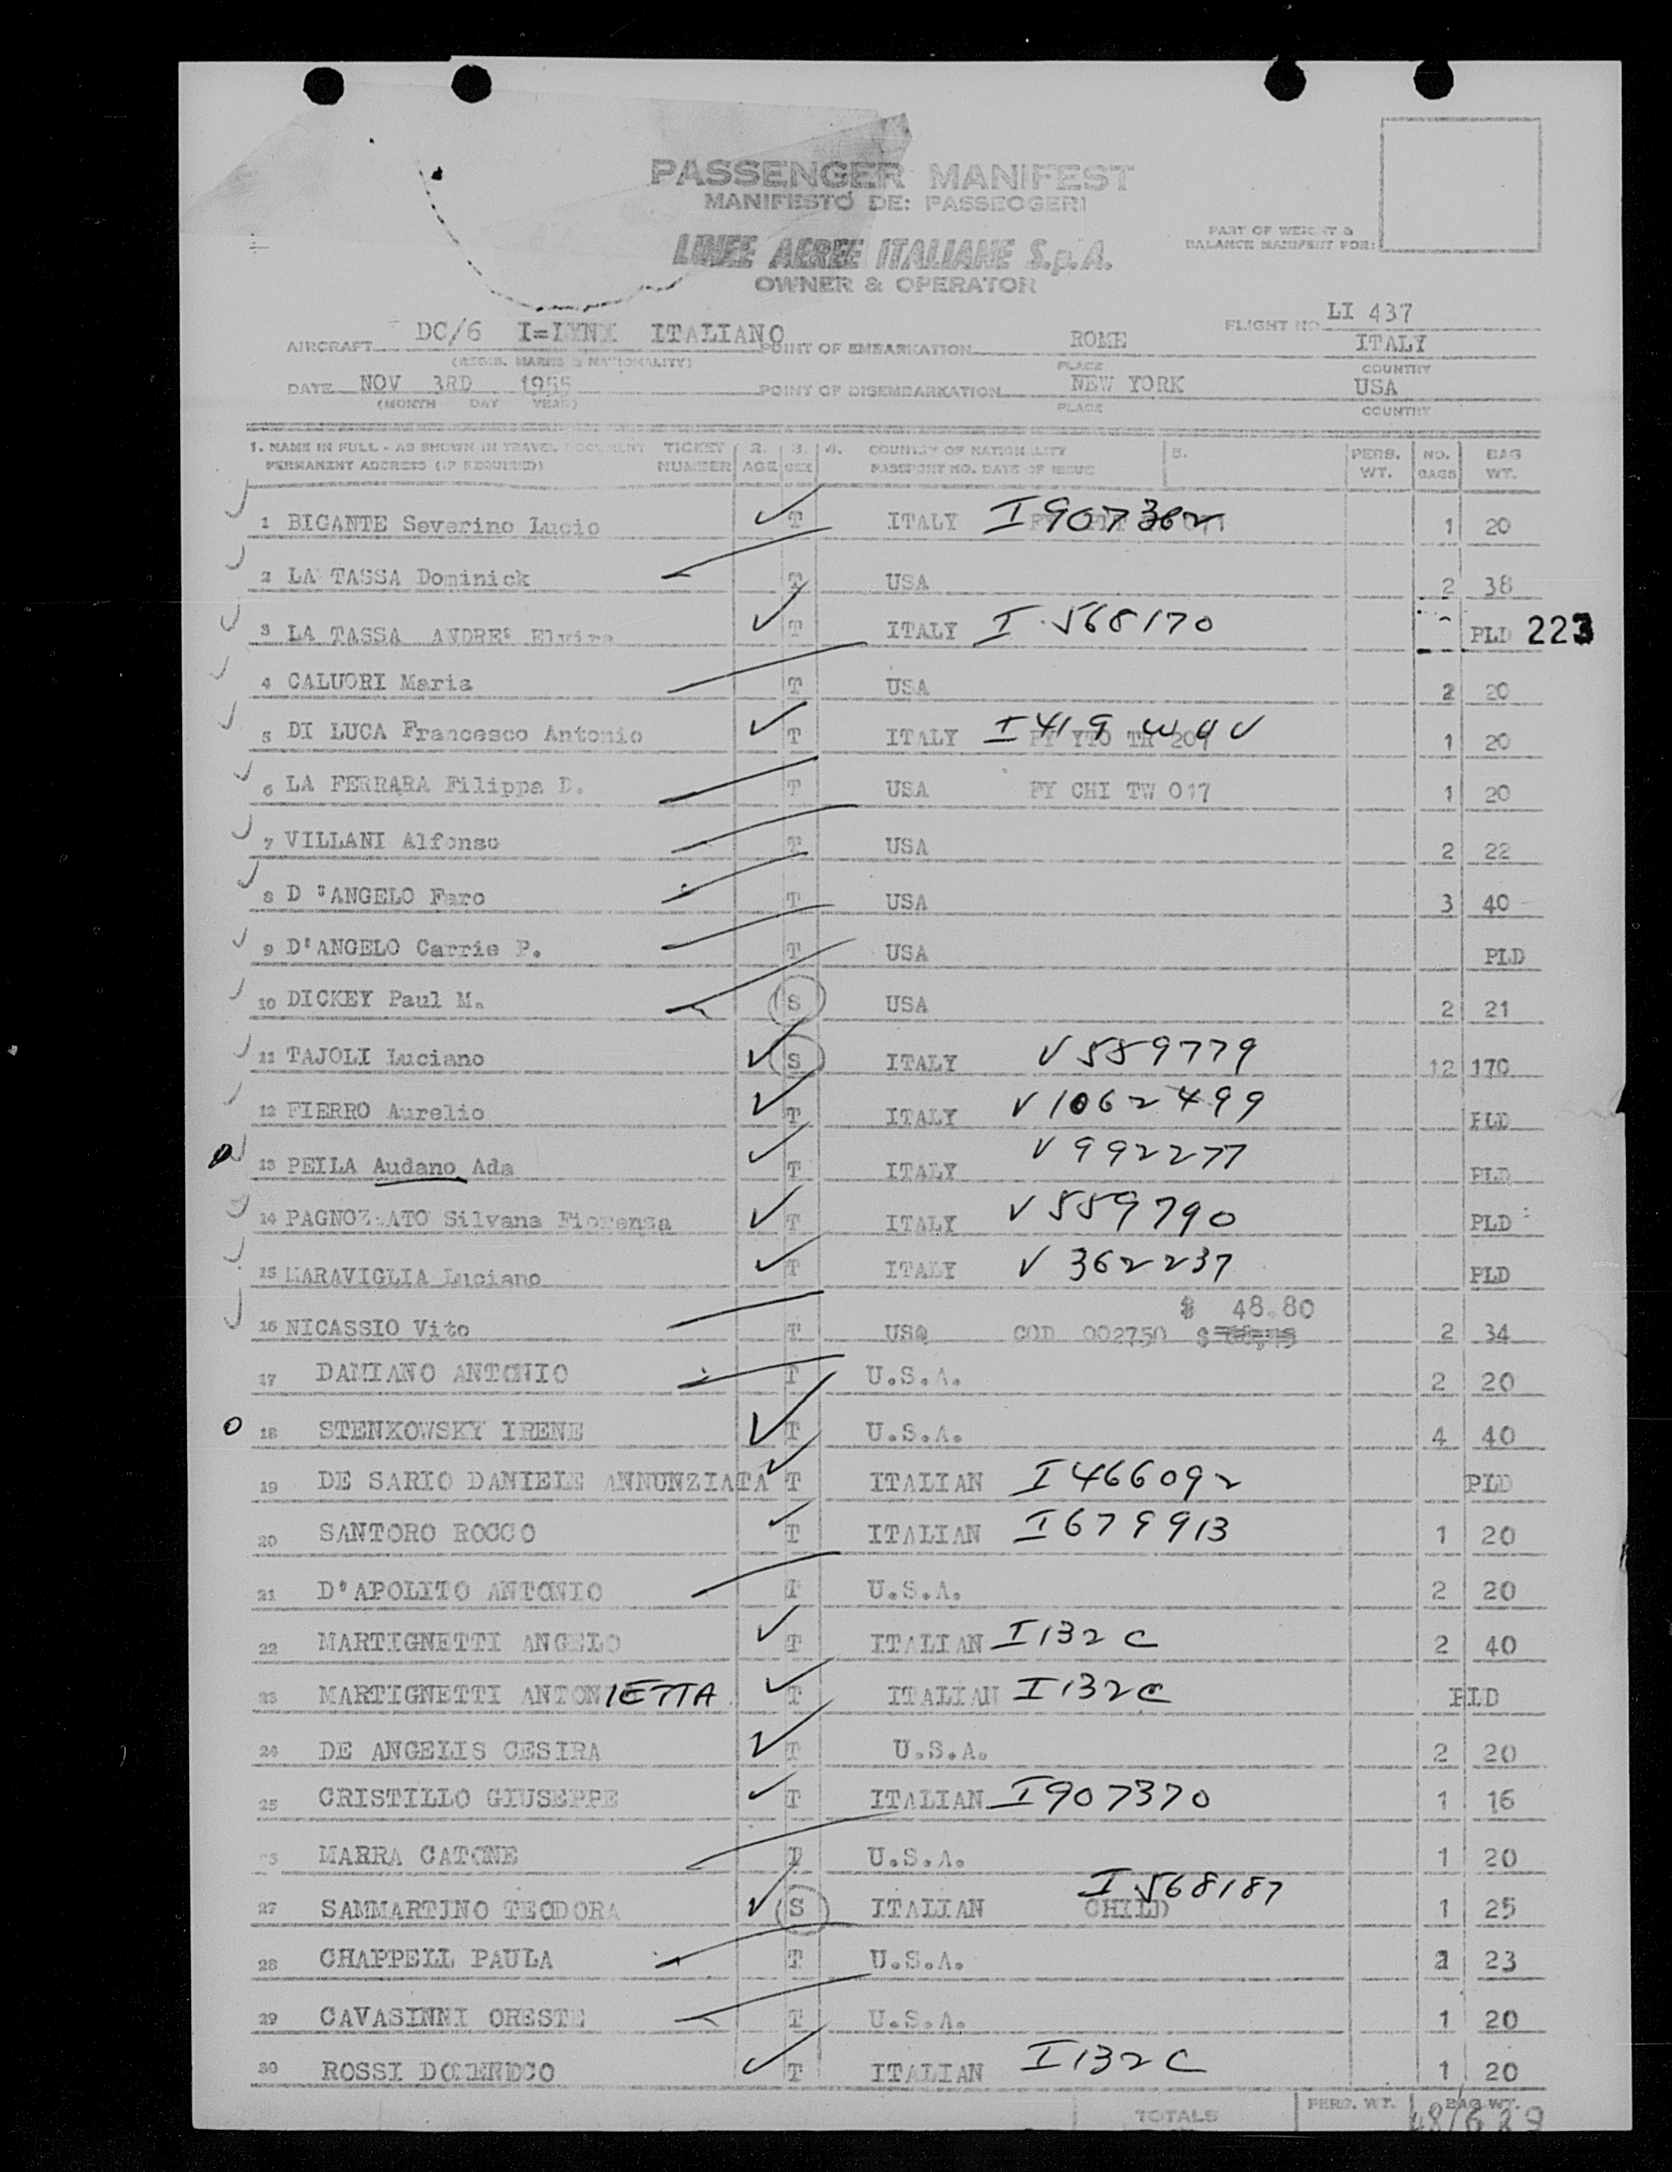 PASSENGER MANIFEST
MANIFESTO DEI PASSEGGERI
LINEE AEREE ITALIANE S.p.A.
OWNER & OPERATOR
PART OF WEIGHT &
BALANCE MANIFEST FOR:
FLIGHT NO. LI 437
AIRCRAFT DC/6 ITALIANO POINT OF EMBARKATION ROME ITALY
(REGIS. MARKS & NATIONALITY) PLACE COUNTRY
DATE NOV 3RD 1955 POINT OF DISEMBARKATION NEW YORK USA
(MONTH DAY YEAR) PLACE COUNTRY
1. NAME IN FULL - AS SHOWN IN TRAVEL DOCUMENT TICKET 2. 3. 4. COUNTRY OF NATIONALITY 5. PERS. NO. BAG
PERMANENT ADDRESS (IF REQUIRED) NUMBER AGE SEX PASSPORT NO. DATE OF ISSUE WT. BAGS WT.
1 BIGANTE Severino Lucio T ITALY I907362 1 20
2 LA TASSA Dominick T USA 2 38
3 LA TASSA ANDRE' Elvira T ITALY I568170 PLD 223
4 CALUORI Maria T USA 2 20
5 DI LUCA Francesco Antonio T ITALY I419 1 20
6 LA FERRARA Filippa D. T USA FY CHI TW 017 1 20
7 VILLANI Alfonso T USA 2 22
8 D'ANGELO Faro T USA 3 40
9 D'ANGELO Carrie P. T USA PLD
10 DICKEY Paul M. S USA 2 21
11 TAJOLI Luciano S ITALY V589779 12 170
12 FIERRO Aurelio T ITALY V1062499 PLD
13 PEILA Audano Ada T ITALY V992277 PLD
14 Silvana Fiorenza T ITALY V559790 PLD
15 MARAVIGLIA Luciano T ITALY V362237 PLD
$ 48.80
16 NICASSIO Vito T USA COD 002750 $ 2 34
17 DAMIANO ANTONIO T U.S.A. 2 20
18 STENKOWSKY IRENE T U.S.A. 4 40
19 DE SARIO DANIELE ANNUNZIATA T ITALIAN I466092 PLD
20 SANTORO ROCCO T ITALIAN I679913 1 20
21 D'APOLITO ANTONIO T U.S.A. 2 20
22 MARTIGNETTI ANGELO T ITALIAN I132C 2 40
23 MARTIGNETTI ANTONIETTA T ITALIAN I132C PLD
24 DE ANGELIS CESIRA T U.S.A. 2 20
25 CRISTILLO GIUSEPPE T ITALIAN I907370 1 16
MARRA CATONE T U.S.A. 1 20
27 SAMMARTINO TEODORA S ITALIAN CHILD I568187 1 25
28 CHAPPELL PAULA T U.S.A. 23
29 CAVASINNI ORESTE T U.S.A. 1 20
30 ROSSI DOMENICO T ITALIAN I132C 1 20
TOTALS PERS. WT. BAG WT.